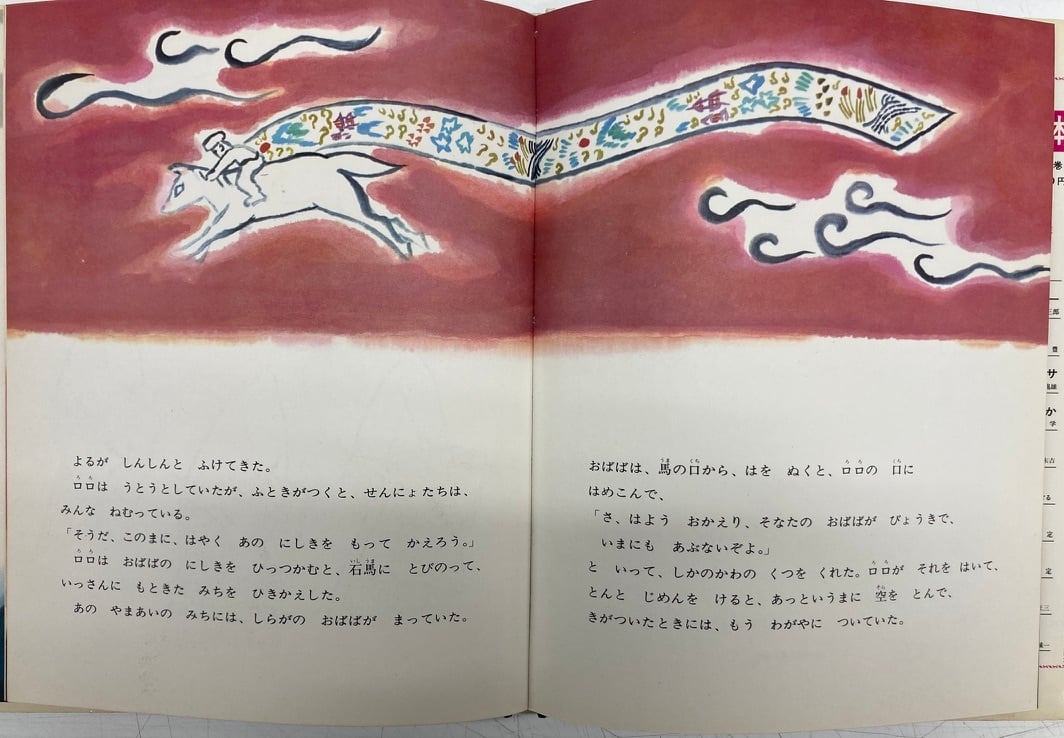 よるが しんしんと ふけてきた。
ロロは うとうとしていたが、ふときがつくと、せんにょたちは、
みんな ねむっている。
「そうだ、このまに、はやく あの にしきを もって かえろう。」
ロロは おばばの にしきを ひっつかむと、石馬に とびのって、
いっさんに もときた みちを ひきかえした。
あの やまあいの みちには、しらがの おばばが まっていた。
おばばは、馬の口から、はを ぬくと、ロロの 口に
はめこんで、
「さ、はよう おかえり、そなたの おばばが びょうきで、
いまにも あぶないぞよ。」
と いって、しかのかわの くつを くれた。ロロが それを はいて、
とんと じめんを けると、あっというまに 空を とんで、
きがついたときには、もう わがやに ついていた。
本
巻
円
三郎
豊
サ
か
学
末吉
定
定